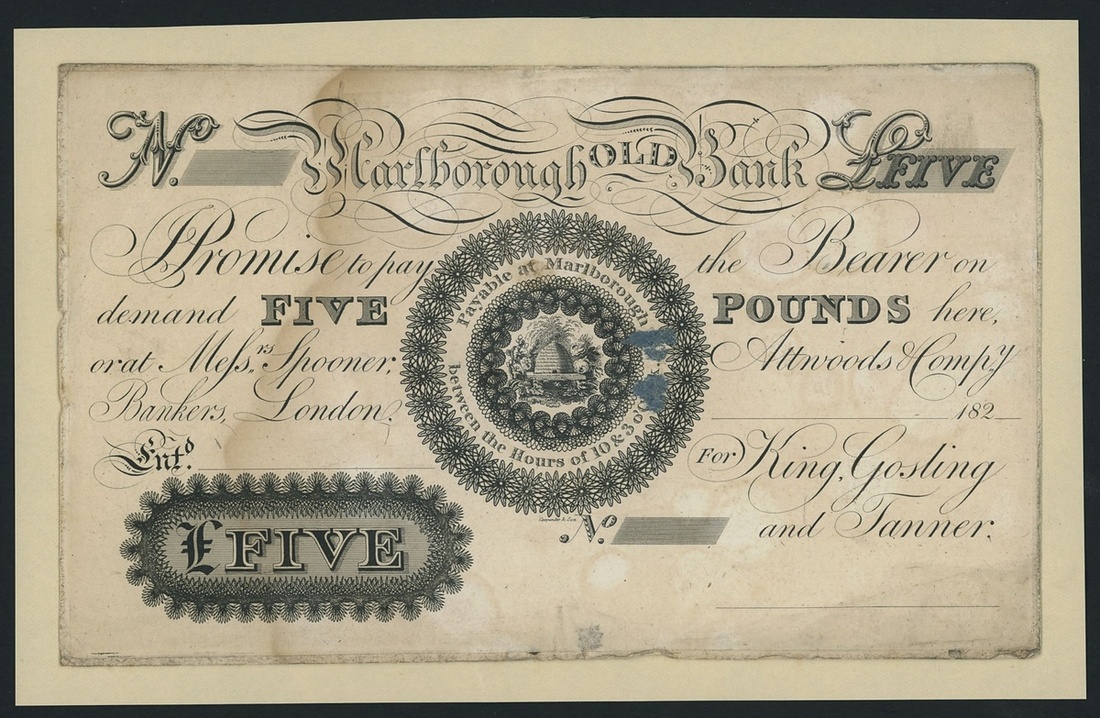 No. Marlborough OLD Bank £FIVE
I Promise to pay the Bearer on
demand FIVE POUNDS here,
or at Messrs. Spooner, Attwoods & Compy
Bankers, London.
182
Entd.
For King, Gosling
and Tanner.
Payable at Marlborough
between the Hours of 10 & 3 o
£FIVE
No.